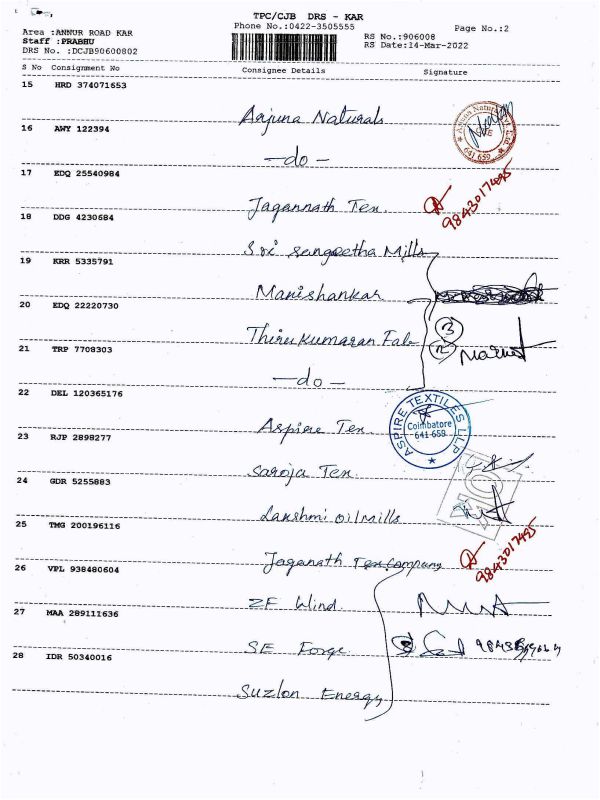 TPC/CJB DRS - KAR
Phone No.:0422-3505555
Page No.:2
Area :ANNUR ROAD KAR
Staff :PRABHU
DRS No. :DCJB90600802
RS No.:906008
RS Date:14-Mar-2022
S No Consignment No Consignee Details Signature
15 HRD 374071653
Arjuna Naturals
16 AWY 122394
-do-
17 EDQ 25540984
Jagannath Tex.
9843017495
18 DDG 4230684
Sri Sangeetha Mills
19 KRR 5335791
Manishankar
20 EDQ 22220730
Thirukumaran Fab
3
2
21 TRP 7708303
-do-
22 DEL 120365176
Aspire Tex
ASPIRE TEXTILES LLP
Coimbatore
641 659
23 RJP 2898277
Saroja Tex
24 GDR 5255883
Lakshmi Oil Mills
25 TMG 200196116
Jaganath Tex Company
9843017495
26 VPL 938480604
ZF Wind.
27 MAA 289111636
SE Forge
28 IDR 50340016
Suzlon Energy
Arjuna Natural Pvt. Ltd.
641 659